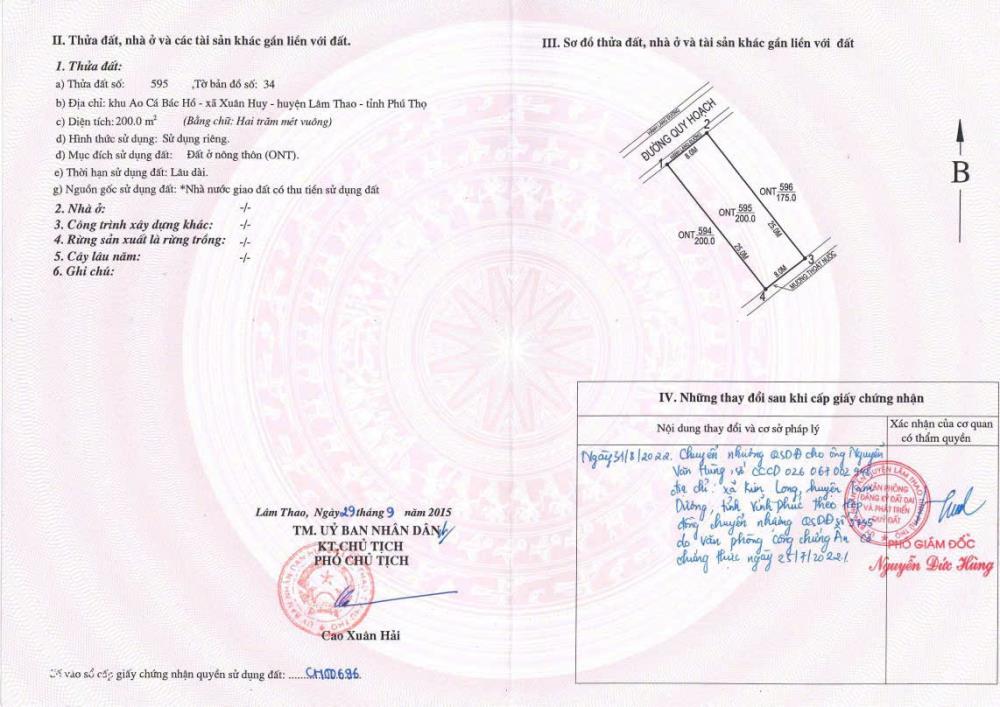 II. Thửa đất, nhà ở và các tài sản khác gắn liền với đất.
1. Thửa đất:
a) Thửa đất số: 595 ,Tờ bản đồ số: 34
b) Địa chỉ: khu Ao Cá Bác Hồ - xã Xuân Huy - huyện Lâm Thao - tỉnh Phú Thọ
c) Diện tích: 200.0 m² (Bằng chữ: Hai trăm mét vuông)
d) Hình thức sử dụng: Sử dụng riêng.
đ) Mục đích sử dụng đất: Đất ở nông thôn (ONT).
e) Thời hạn sử dụng đất: Lâu dài.
g) Nguồn gốc sử dụng đất: *Nhà nước giao đất có thu tiền sử dụng đất
2. Nhà ở: -/-
3. Công trình xây dựng khác: -/-
4. Rừng sản xuất là rừng trồng: -/-
5. Cây lâu năm: -/-
6. Ghi chú:
Lâm Thao, Ngày 29 tháng 9 năm 2015
TM. UỶ BAN NHÂN DÂN
KT.CHỦ TỊCH
PHÓ CHỦ TỊCH
Cao Xuân Hải
vào sổ cấp giấy chứng nhận quyền sử dụng đất: ......CH00696.
III. Sơ đồ thửa đất, nhà ở và tài sản khác gắn liền với đất
HÀNH LANG ĐƯỜNG
ĐƯỜNG QUY HOẠCH
HÀNH LANG ĐƯỜNG
1
2
8.0M
ONT 596
175.0
ONT 595
200.0
ONT 594
200.0
25.0M
25.0M
8.0M
3
4
MƯƠNG THOÁT NƯỚC
B
IV. Những thay đổi sau khi cấp giấy chứng nhận
Nội dung thay đổi và cơ sở pháp lý
Xác nhận của cơ quan
có thẩm quyền
Ngày 31/8/2022. Chuyển nhượng QSDĐ cho ông Nguyễn
Văn Hùng, số CCCD 026 067 002
địa chỉ: xã Kim Long, huyện Tam
Dương, tỉnh Vĩnh Phúc theo hợp
đồng chuyển nhượng QSDĐ số
do Văn phòng công chứng Ân
chứng thực ngày 25/7/2022./.
VĂN PHÒNG
ĐĂNG KÝ ĐẤT ĐAI
VÀ PHÁT TRIỂN
QUỸ ĐẤT
PHÓ GIÁM ĐỐC
Nguyễn Đức Hùng